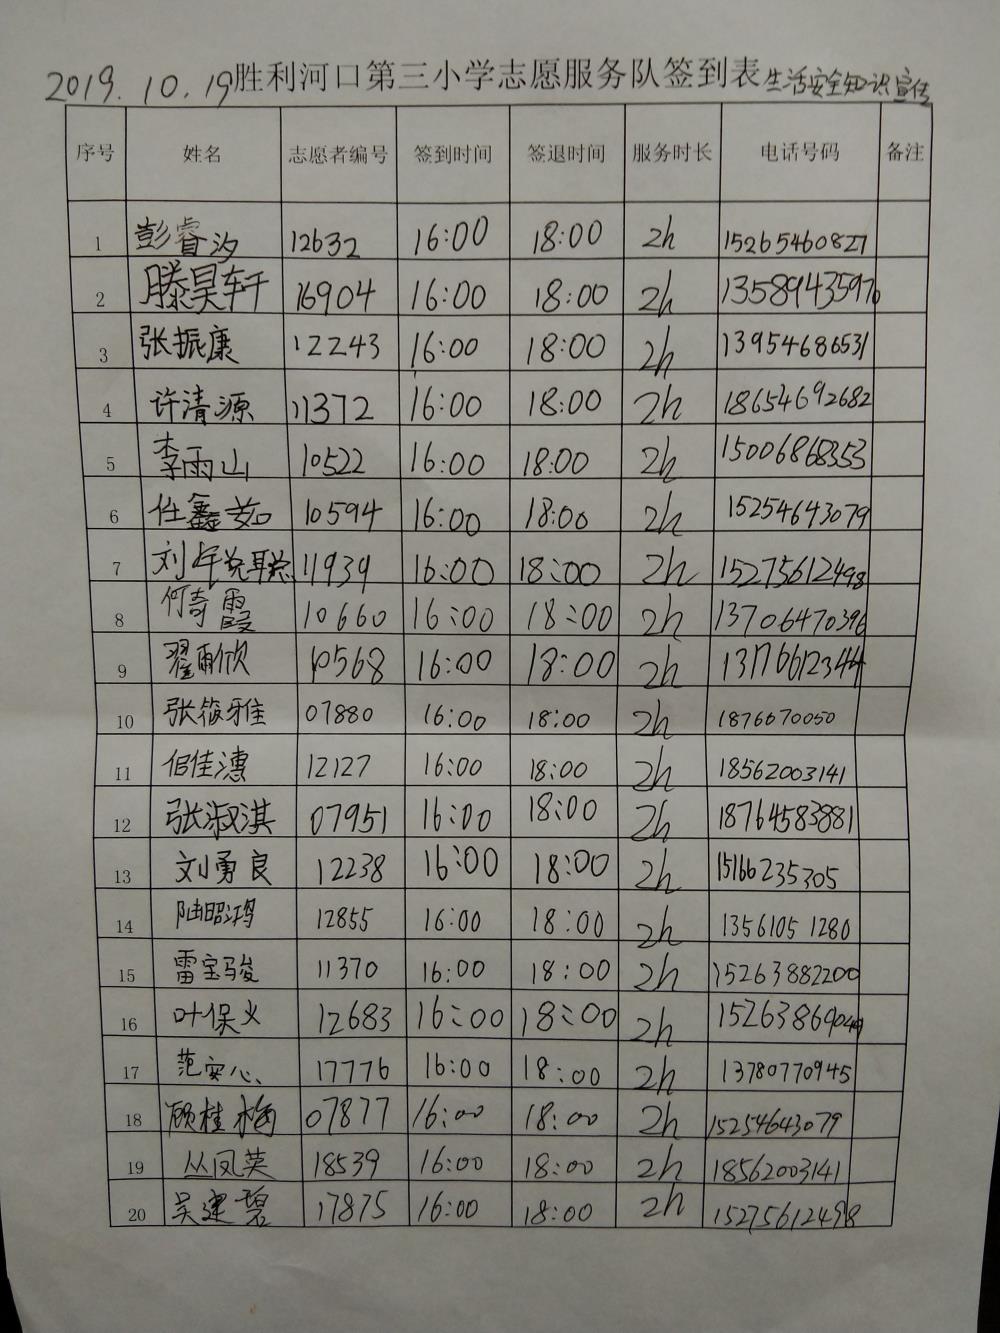 2019.10.19胜利河口第三小学志愿服务队签到表生活安全知识宣传
序号 姓名 志愿者编号 签到时间 签退时间 服务时长 电话号码 备注
1 彭睿汐 12632 16:00 18:00 2h 15265460827
2 滕昊轩 16904 16:00 18:00 2h 13589435970
3 张振康 12243 16:00 18:00 2h 13954686531
4 许清源 11372 16:00 18:00 2h 18654692682
5 李雨山 10522 16:00 18:00 2h 15006868353
6 任鑫茹 10594 16:00 18:00 2h 15254643079
7 刘 11939 16:00 18:00 2h 15275612498
8 何奇霞 10660 16:00 18:00 2h 13706470396
9 翟雨欣 10568 16:00 18:00 2h
10 张筱雅 07880 16:00 18:00 2h 1876670050
11 佳 12127 16:00 18:00 2h 18562003141
12 张淑淇 07951 16:00 18:00 2h 18764583881
13 刘勇良 12238 16:00 18:00 2h 15166235305
14 陆昭鸿 12855 16:00 18:00 2h 1356105 1280
15 雷宝骏 11370 16:00 18:00 2h 15263882200
16 叶保义 12683 16:00 18:00 2h
17 范安心 17776 16:00 18:00 2h 13780770945
18 顾桂梅 07877 16:00 18:00 2h 15254643079
19 丛凤英 18539 16:00 18:00 2h 18562003141
20 吴建碧 17875 16:00 18:00 2h 15275612498